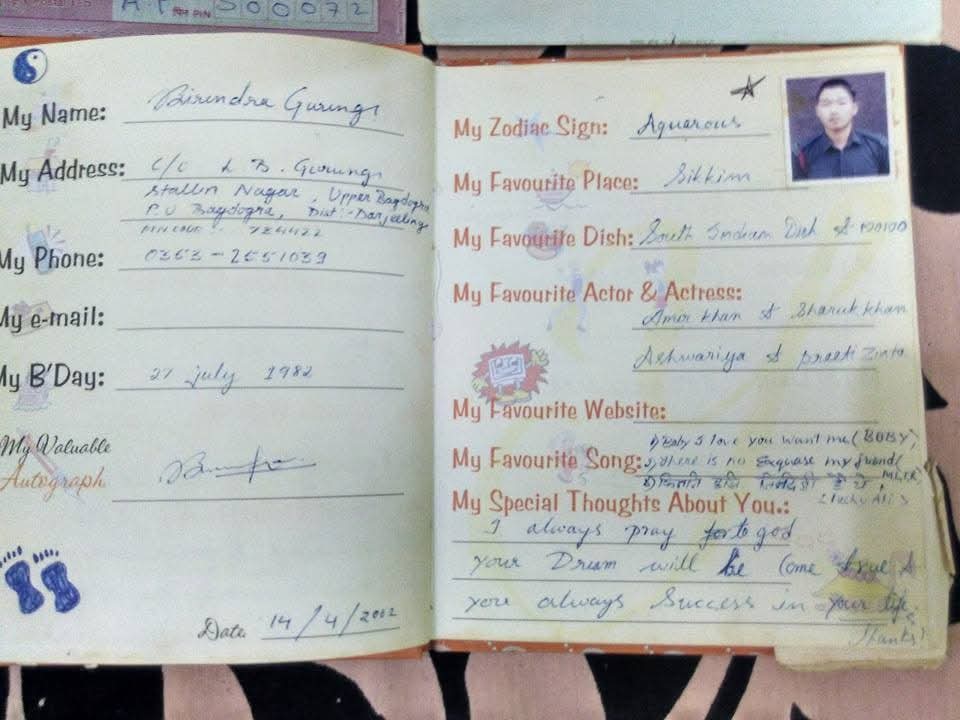 PIN 500072
My Name: Birendra Gurung
My Address: C/O L B. Gurung
Stallin Nagar, Upper Bagdogra
P.O Bagdogra, Dist:- Darjeeling
PIN CODE: 734422
My Phone: 0353-2551039
My e-mail:
My B'Day: 27 july 1982
My Valuable
Autograph
Date 14/4/2002
My Zodiac Sign: Aquarous
My Favourite Place: Sikkim
My Favourite Dish: South Indian Dish &
My Favourite Actor & Actress:
Amir Khan & Sharuk khan
Ashwariya & Preeti Zinta
My Favourite Website:
1) Baby I love you want me (BOBY)
My Favourite Song: 2) there is no my friend (
My Special Thoughts About You.:
I always pray for to god
your Dream will be Come true &
you always Success in your life.
Thanks!